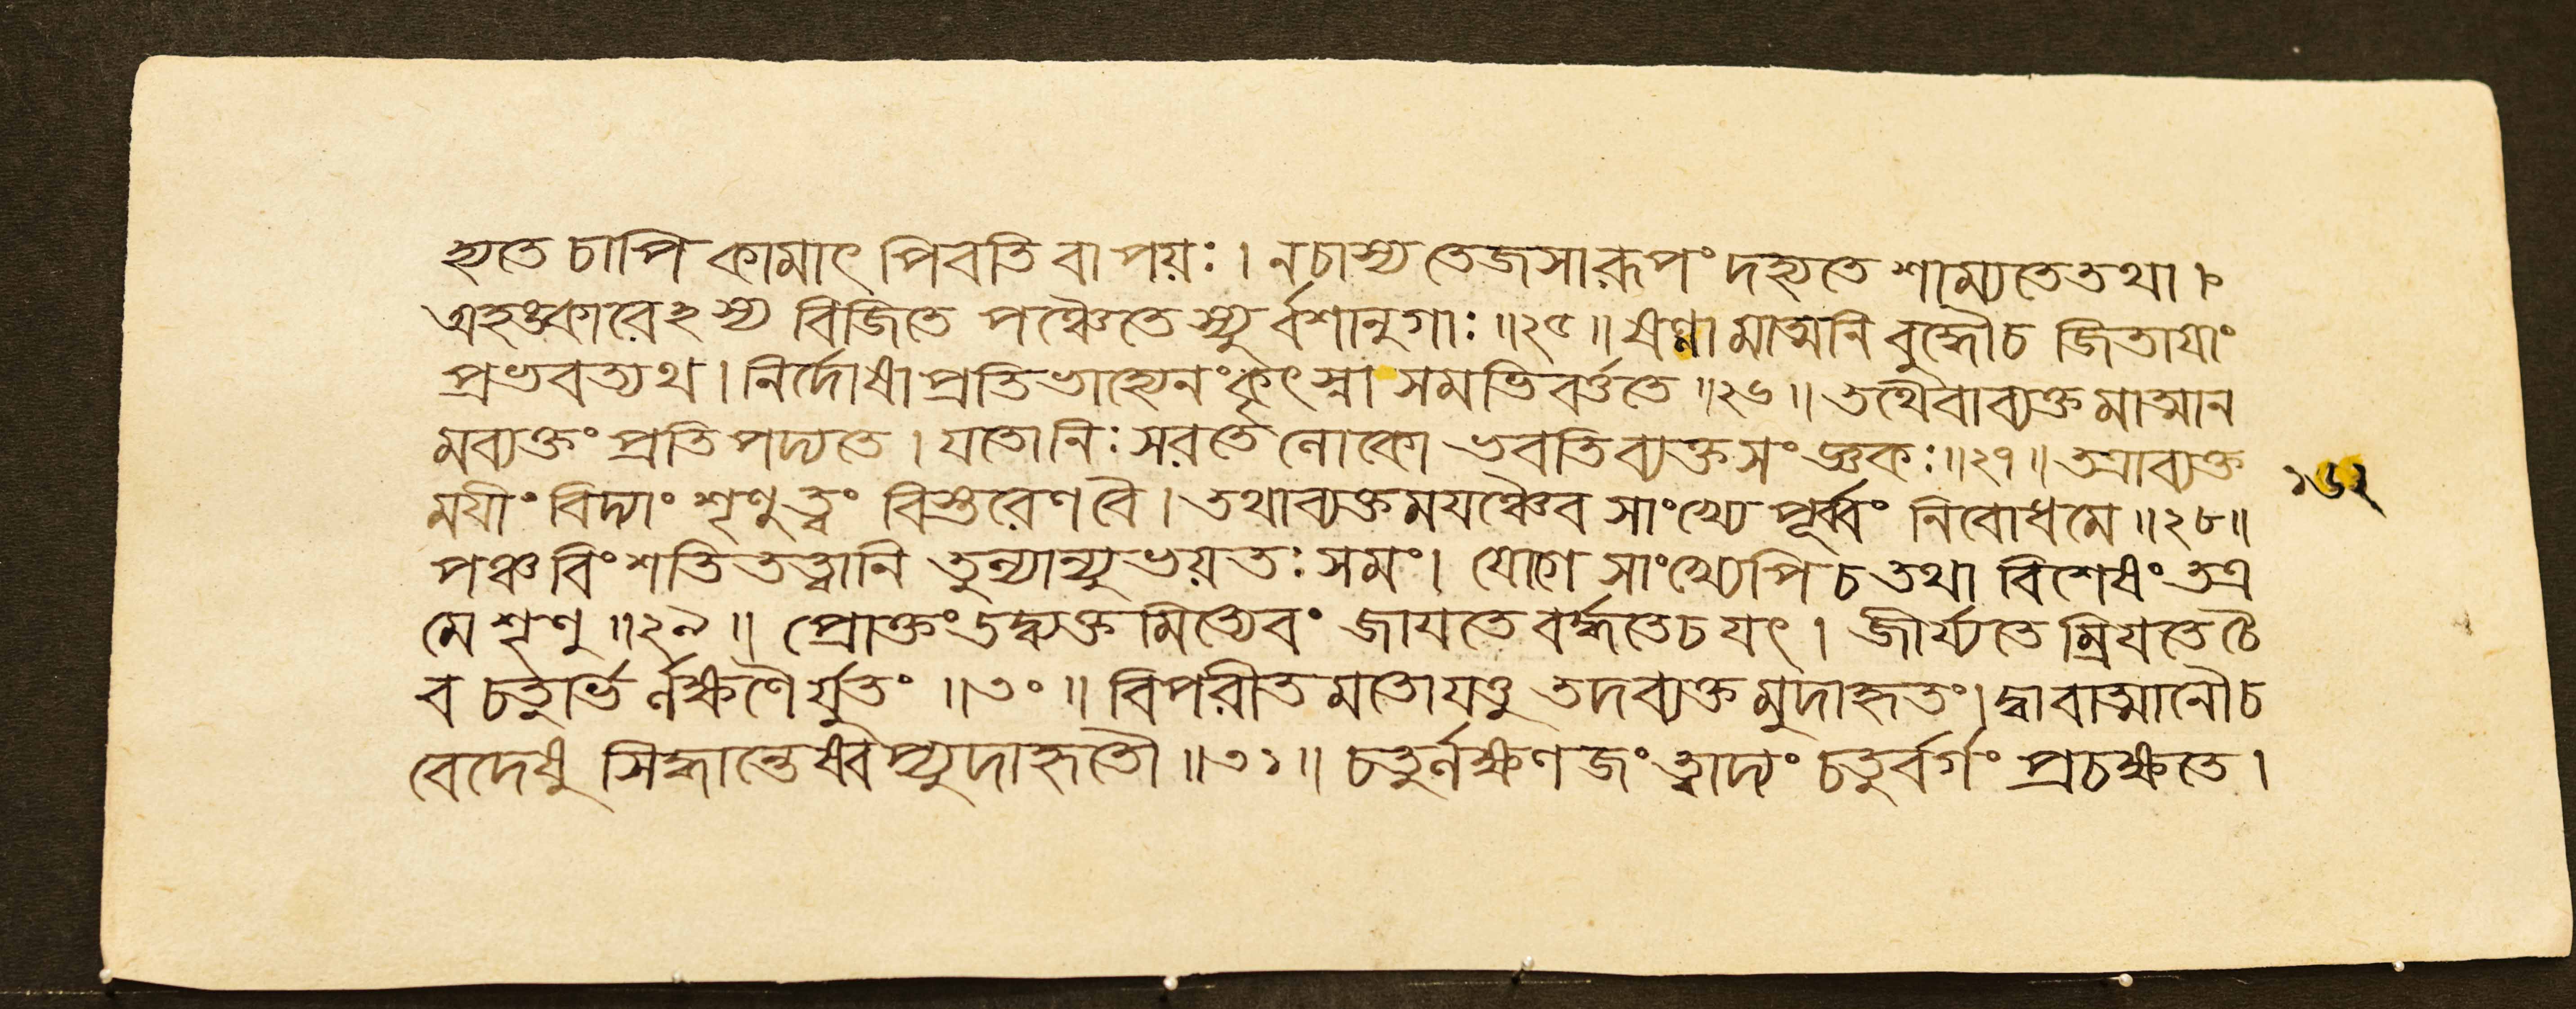 হ্যতে চাপি কামাৎ পিবতি বা পয়ঃ । ন চাস্য তেজসা রূপং দহ্যতে শাম্যতে তথা ।
অহঙ্কারেঽস্য বিজিতে পঞ্চৈতে স্যুর্বশানুগাঃ ॥২৫॥ ষণ্ণামাত্মনি বুদ্ধৌ চ জিতাযাং
প্রভবত্যথ । নির্দোষা প্রতিভা হ্যেনং কৃৎস্না সমভিবর্ত্ততে ॥২৬॥ তথৈবাব্যক্তমাত্মান
মব্যক্তং প্রতিপদ্যতে । যতো নিঃসরতে লোকো ভবতি ব্যক্তসংজ্ঞকঃ ॥২৭॥ তত্রাব্যক্ত
মযীং বিদ্যাং শৃণু ত্বং বিস্তরেণ বৈ । তথা ব্যক্তমযঞ্চৈব সাংখ্যে পূর্ব্বং নিবোধ মে ॥২৮॥
পঞ্চবিংশতি তত্ত্বানি তুল্যান্যুভয়তঃ সমং । যোগে সাংখ্যেপি চ তথা বিশেষং তত্র
মে শৃণু ॥২৯॥ প্রোক্তং তদ্ব্যক্তমিত্যেবং জাযতে বর্দ্ধতে চ যৎ । জীর্য্যতে ম্রিযতে চৈ
ব চতুর্ভির্লক্ষণৈর্যুতং ॥৩০॥ বিপরীতমতো যত্তু তদব্যক্তমুদাহৃতং । দ্বাবাত্মানৌ চ
বেদেষু সিদ্ধান্তেষ্বপ্যুদাহৃতৌ ॥৩১॥ চতুর্লক্ষণজং ত্বাদ্যং চতুর্বর্গং প্রচক্ষতে ।